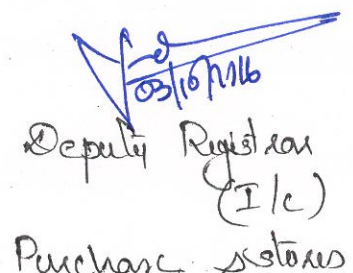 03/10/2016
Deputy Registrar
(I/c)
Purchase & Stores